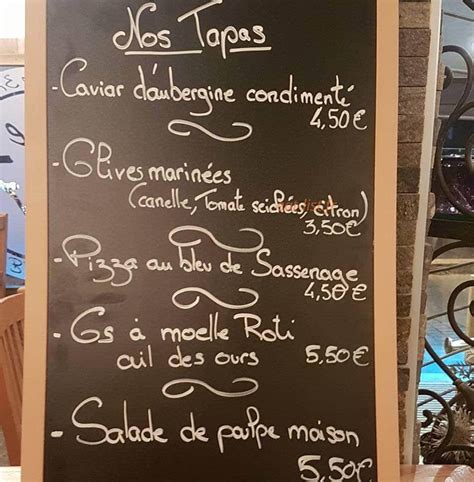 Nos Tapas
- Caviar d'aubergine condimenté
4,50€
- Olives marinées
(canelle, Tomate seichées, citron)
3,50€
- Pizza au bleu de Sassenage
4,50€
- Os à moelle Roti
ail des ours 5,50€
- Salade de poulpe maison
5,50€